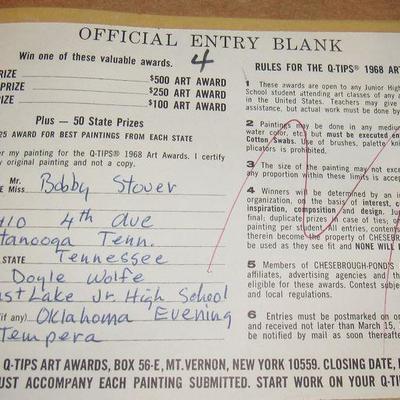 OFFICIAL ENTRY BLANK
Win one of these valuable awards.
4
PRIZE $500 ART AWARD
PRIZE $250 ART AWARD
IZE $100 ART AWARD
Plus — 50 State Prizes
25 AWARD FOR BEST PAINTINGS FROM EACH STATE
er my painting for the Q-TIPS® 1968 Art Awards. I certify
y original painting and not a copy.
Mr.
Miss Bobby Stover
10 4th Ave
tanooga Tenn.
STATE Tennessee
Doyle Wolfe
ast Lake Jr. High School
if any) Oklahoma Evening
Tempera
RULES FOR THE Q-TIPS® 1968 ART
1 These awards are open to any Junior High
School student attending art classes of any a
in the United States. Teachers may give
assistance, but actual work must be done by
2 Paintings may be done in any mediu
water color, etc.) but must be executed en
Cotton Swabs. Use of brushes, palette kni
plicators is prohibited.
3 The size of the painting may not exc
any proportion within these limits is accep
4 Winners will be determined by an in
organization, on the basis of interest, c
inspiration, composition and design. Ju
final; duplicate prizes in case of ties;
painting per student. All entries, conten
therein become the property of CHESEB
be used as they see fit and NONE WILL B
5 Members of CHESEBROUGH-POND'S
affiliates, advertising agencies and the
eligible for these awards. Contest subjec
and local regulations.
6 Entries must be postmarked on or
and received not later than March 15, 1
be notified by mail as soon thereafter
Q-TIPS ART AWARDS, BOX 56-E, MT. VERNON, NEW YORK 10559. CLOSING DATE,
UST ACCOMPANY EACH PAINTING SUBMITTED. START WORK ON YOUR Q-T